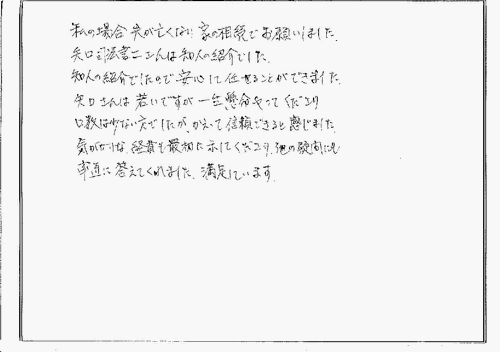 私の場合夫が亡くなり家の相続でお願いしました。
矢口司法書士さんは知人の紹介でした。
知人の紹介でしたので安心して任せることができました。
矢口さんは若いですが一生懸命やってくださり
口数は少ない方でしたが、かえって信頼できると感じました。
気がかりな経費も最初に示してくださり、他の疑問にも
率直に答えてくれました。満足しています。